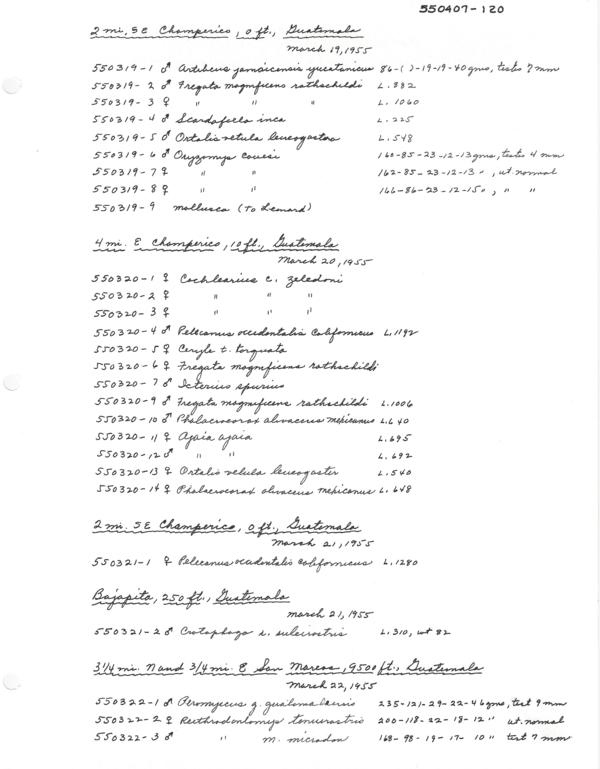 550407-120
2 mi, SE Champerico, 0 ft., Guatemala
March 19, 1955
550319-1 ♂ Artibeus jamaicensis yucatanicus 86-( )-19-19-40 gms, testes 7 mm
550319-2 ♂ Fregata magnificens rothschildi L. 882
550319-3 ♀ " " " L. 1060
550319-4 ♂ Scardafella inca L. 225
550319-5 ♂ Ortalis vetula leucogastra L. 548
550319-6 ♂ Oryzomys couesi 160-85-23-12-13 gms, testes 4 mm
550319-7 ♀ " " 162-85-23-12-13 ", ut. normal
550319-8 ♀ " " 166-86-23-12-15 ", " "
550319-9 mollusca (to Leonard)
4 mi. E Champerico, 10 ft., Guatemala
March 20, 1955
550320-1 ♀ Cochlearius c. zeledoni
550320-2 ♀ " " "
550320-3 ♀ " " "
550320-4 ♂ Pelecanus occidentalis californicus L. 1192
550320-5 ♀ Ceryle t. torquata
550320-6 ♀ Fregata magnificens rothschildi
550320-7 ♂ Icterus spurius
550320-9 ♂ Fregata magnificens rothschildi L. 1006
550320-10 ♂ Phalacrocorax olivaceus mexicanus L. 640
550320-11 ♀ Ajaia ajaia L. 695
550320-12 ♂ " " L. 692
550320-13 ♀ Ortalis vetula leucogaster L. 540
550320-14 ♀ Phalacrocorax olivaceus mexicanus L. 648
2 mi. SE Champerico, 0 ft., Guatemala
March 21, 1955
550321-1 ♀ Pelecanus occidentalis californicus L. 1280
Bajapita, 250 ft., Guatemala
March 21, 1955
550321-2 ♂ Crotophaga s. sulcirostris L. 310, wt 82
3 1/4 mi. N and 3/4 mi. E San Marcos, 9500 ft., Guatemala
March 22, 1955
550322-1 ♂ Peromyscus g. guatemalensis 235-121-29-22-46 gms, test 9 mm
550322-2 ♀ Reithrodontomys tenuirostris 200-118-22-18-12 " ut. normal
550322-3 ♂ " m. microdon 168-98-19-17-10 " test 7 mm